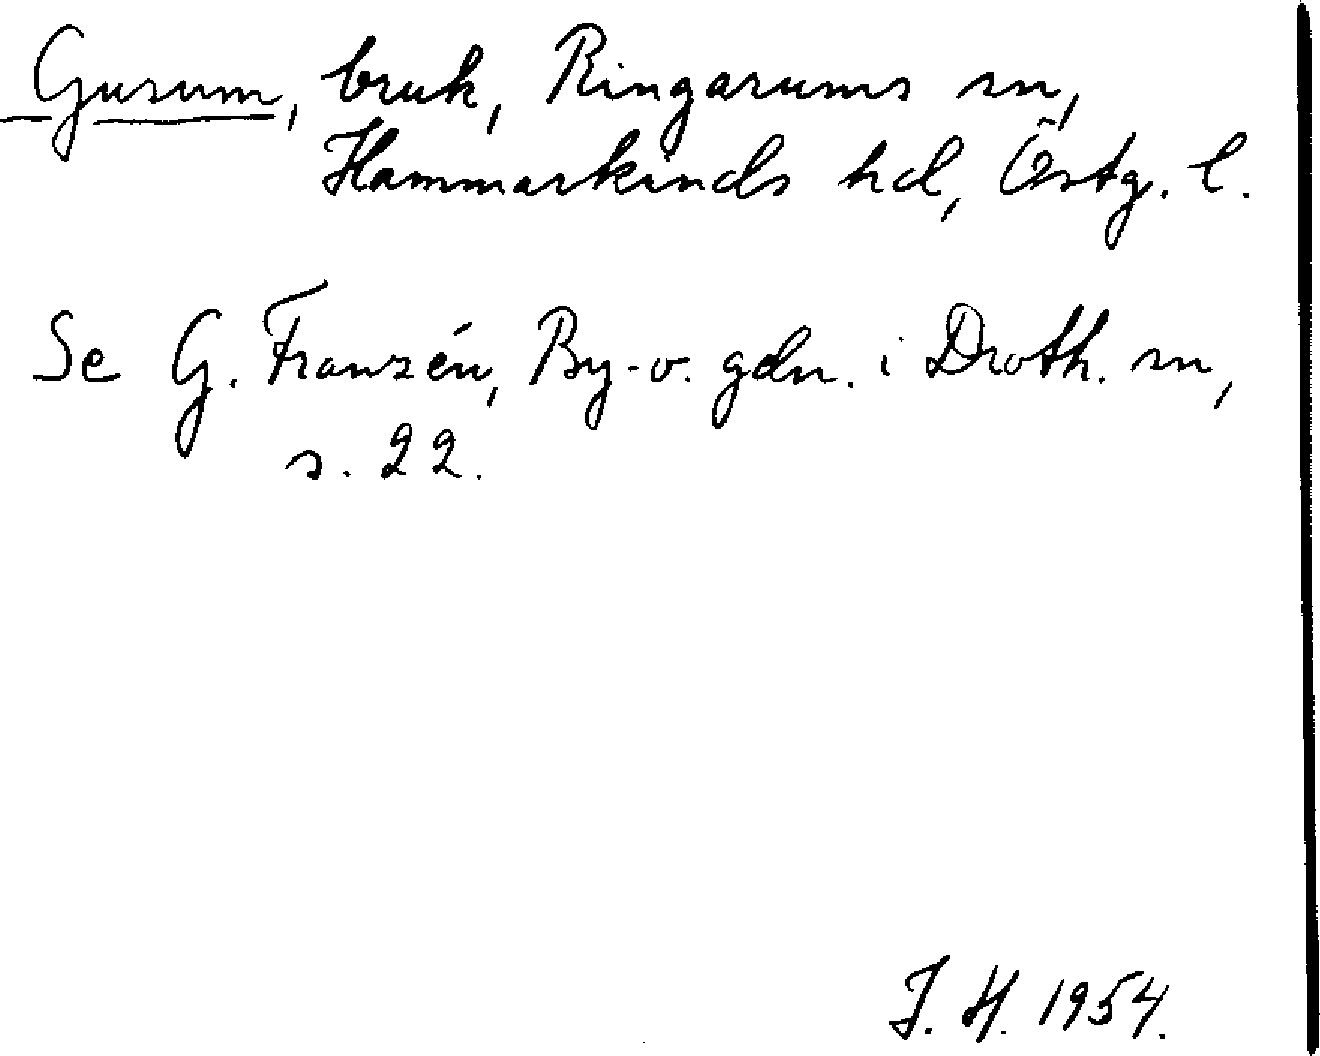 Gusum, bruk, Ringarums sn,
Hammarkinds hd, Östg. l.
Se G. Franzén, By- o. gdn. i Droth. sn,
s. 22.
J. H. 1954.